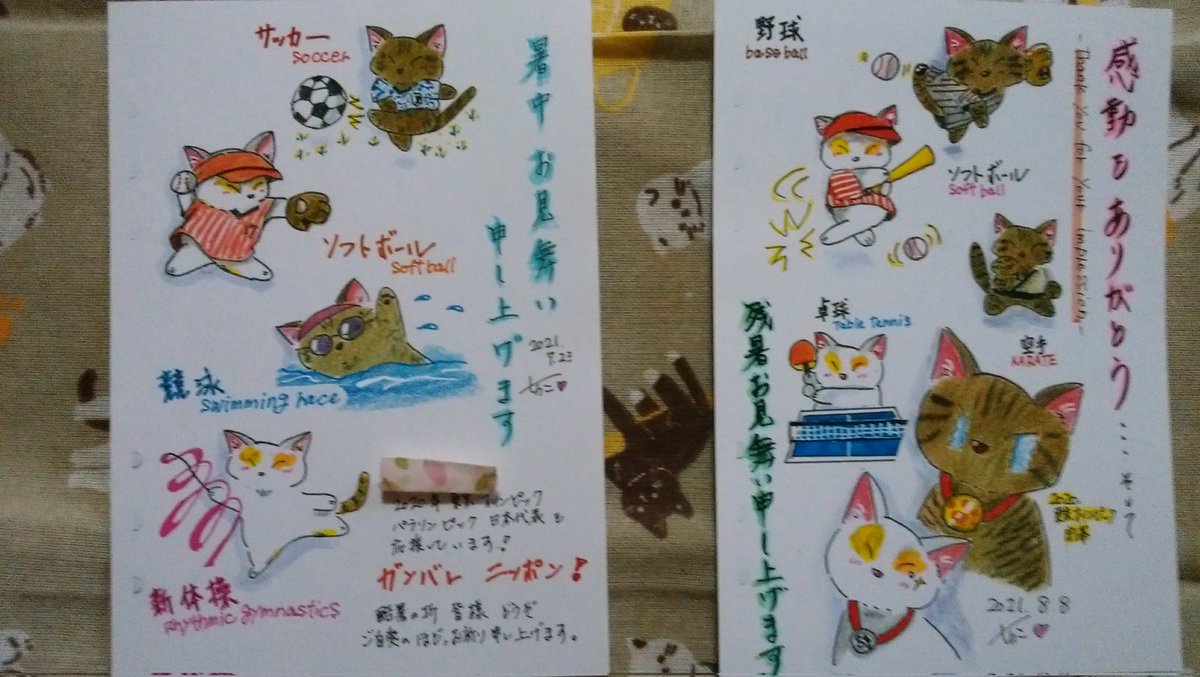 サッカー
soccer
暑中お見舞い
申し上げます
2021.
7.23
ソフトボール
softball
競泳
swimming race
新体操
rhythmic gymnastics
パラリンピック 日本代表を
応援しています!
ガンバレ ニッポン!
酷暑の折 皆様 どうぞ
ご自愛のほど、お祈り申し上げます。
野球
baseball
感動をありがとう...
Thank you for your impression
そして
ソフトボール
softball
卓球
Table Tennis
空手
KARATE
残暑お見舞い申し上げます
2021. 8 8